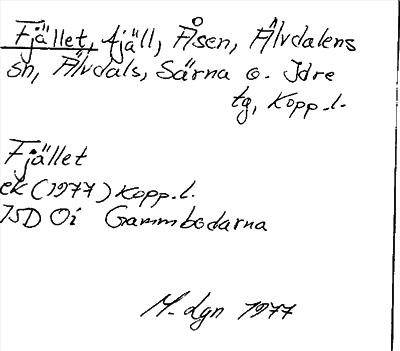 Fjället, fjäll, Åsen, Älvdalens
sn, Älvdals, Särna o. Idre
tg, Kopp.l.
Fjället
ek (1977) Kopp.l.
15D 0i Gammbodarna
M-dgn 1977